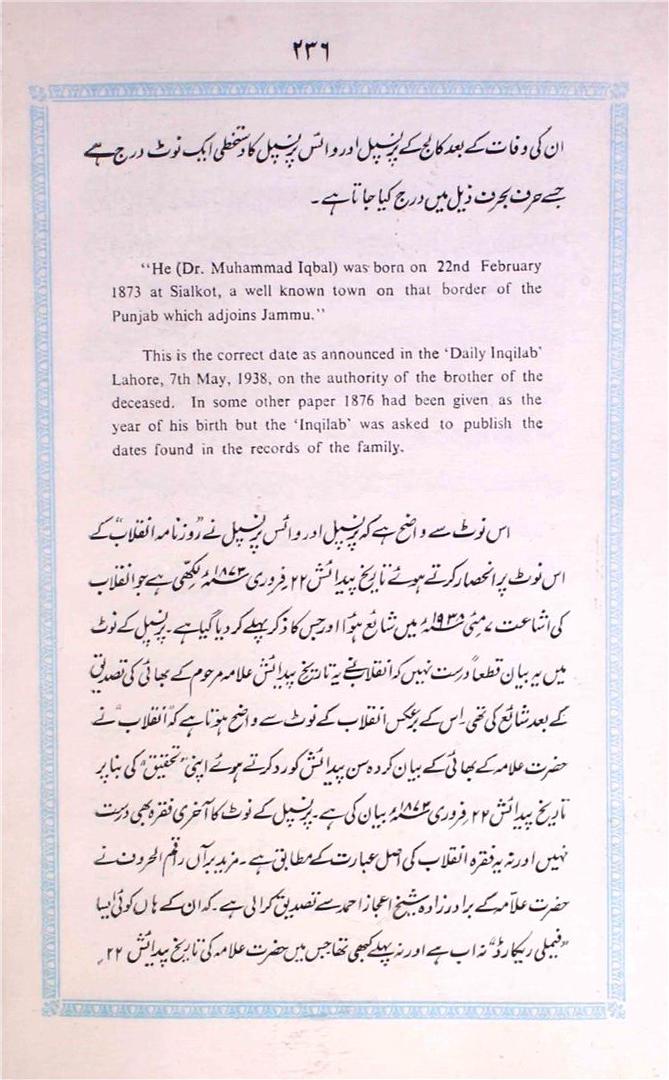 ۲۳۶
ان کی وفات کے بعد کالج کے پرنسپل اور وائس پرنسپل کا دستخطی ایک نوٹ درج ہے
جسے حرف بحرف ذیل میں درج کیا جاتا ہے۔
“He (Dr. Muhammad Iqbal) was born on 22nd February
1873 at Sialkot, a well known town on that border of the
Punjab which adjoins Jammu.”
This is the correct date as announced in the ‘Daily Inqilab’
Lahore, 7th May, 1938, on the authority of the brother of the
deceased. In some other paper 1876 had been given as the
year of his birth but the ‘Inqilab’ was asked to publish the
dates found in the records of the family.
اس نوٹ سے واضح ہے کہ پرنسپل اور وائس پرنسپل نے ”روزنامہ انقلاب“ کے
اس نوٹ پر انحصار کرتے ہوئے تاریخ پیدائش ۲۲ فروری ۱۸۷۳ء لکھی ہے جو انقلاب
کی اشاعت ۷ مئی ۱۹۳۸ء میں شائع ہؤا اور جس کا ذکر پہلے کر دیا گیا ہے۔ پرنسپل کے نوٹ
میں یہ بیان قطعاً درست نہیں کہ انقلاب نے یہ تاریخ پیدائش علامہ مرحوم کے بھائی کی تصدیق
کے بعد شائع کی تھی۔ اس کے برعکس انقلاب کے نوٹ سے واضح ہوتا ہے کہ ”انقلاب“ نے
حضرت علامہ کے بھائی کے بیان کردہ سن پیدائش کو رد کرتے ہوئے اپنی ”تحقیق“ کی بنا پر
تاریخ پیدائش ۲۲ فروری ۱۸۷۳ء بیان کی ہے۔ پرنسپل کے نوٹ کا آخری فقرہ بھی درست
نہیں اور نہ یہ فقرہ انقلاب کی اصل عبارت کے مطابق ہے۔ مزید برآں راقم الحروف نے
حضرت علامہ کے برادر زادہ شیخ اعجاز احمد سے تصدیق کرالی ہے۔ کہ ان کے ہاں کوئی ایسا
”فیملی ریکارڈ“ نہ اب ہے اور نہ پہلے کبھی تھا جس میں حضرت علامہ کی تاریخ پیدائش ۲۲